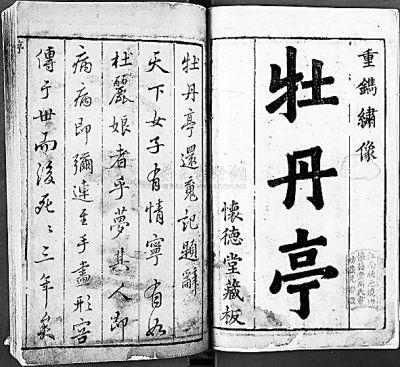 重鐫繡像
牡丹亭
懷德堂藏板
牡丹亭還魂記題辭
天下女子有情寧有如
杜麗娘者乎夢其人即
病病即彌連至手畫形容
傳于世而後死〻三年矣
序